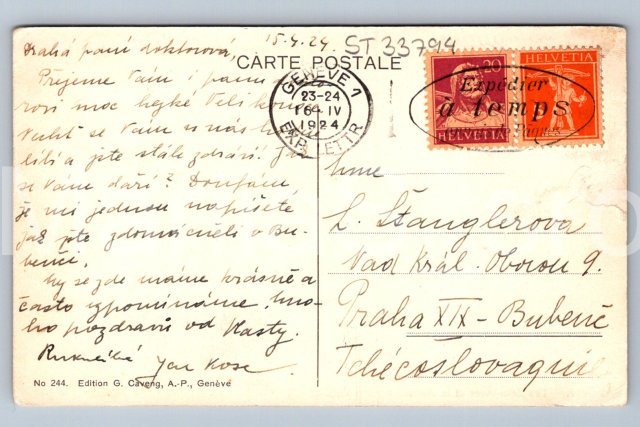 15.4.24. ST 33794
Drahá paní doktorová,
CARTE POSTALE
Přejeme Vám i panu
moc hezké Veliko
se Vám u nás
a jste stále zdrávi?
se Vám daří? Doufám,
že mi jednou napíšete
jak jste zdomácněli v Bu-
benči.
My se zde máme krásně a
často vzpomínáme. Mno-
ho pozdravů od Vlasty.
Jan Kose
No 244. Edition G. Caveng, A.-P., Genève
GENÈVE 1
23-24
16 IV
1924
EXP. LETTR.
20
HELVETIA
HELVETIA
Expédier
à temps
Mme
L. Štanglerova
Nad Král. Oborou 9.
Praha XIX - Bubeneč
Tchécoslovaquie